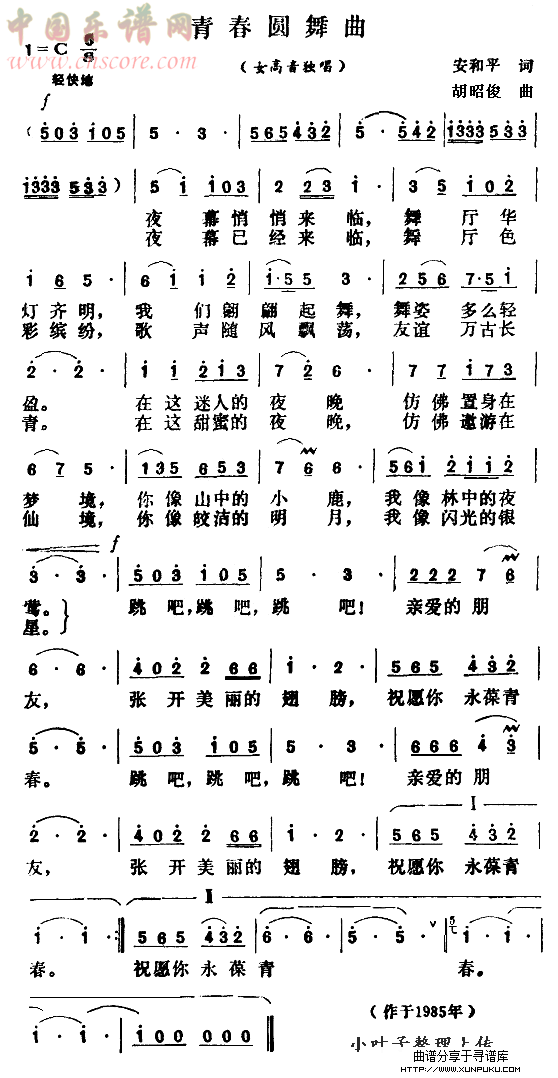 中国乐谱网
www.cnscore.com
青春圆舞曲
1=C 6/8
(女高音独唱)
安和平 词
轻快地
胡昭俊 曲
f
(503 105 | 5·3· | 565432 | 5·542 | 1333533 |
1333533) | 5 1 103 | 2 23 1· | 3 5 102 |
夜 幕悄 悄来临, 舞 厅华
夜 幕已 经来临, 舞 厅色
1 6 5· | 6 1 1 2 | 1·55 3· | 256 7·51 |
灯齐明, 我 们翩 翩起舞, 舞姿 多么轻
彩缤纷, 歌 声随 风飘荡, 友谊 万古长
2·2· | 1 1 213 | 7 2 6· | 7 7 173 |
盈。 在这迷人的夜晚 仿佛置身在
青。 在这甜蜜的夜晚, 仿佛遨游在
6 7 5· | 135 653 | 7 6· | 561 2112 |
梦境, 你像山中的小鹿, 我像林中的夜
仙境, 你像皎洁的明月, 我像闪光的银
f
3·3· | 503 105 | 5·3· | 222 7 6 |
莺。 跳吧,跳吧,跳 吧! 亲爱的朋
星。
6·6· | 402 266 | 1·2· | 565 465 |
友, 张开美丽的翅膀, 祝愿你永葆青
5·5· | 503 105 | 5·3· | 666 4 3 |
春。 跳吧,跳吧,跳 吧! 亲爱的朋
I
2·2· | 402 266 | 1·2· | 565 432 |
友, 张开美丽的翅膀, 祝愿你永葆青
II
1·1· :| 565 432 | 1·6· | 5·5· | 1·1· |
春。 祝愿你永葆青 春。
1·1· | 1 0 0 0 0 0 ‖
(作于1985年)
小叶子整理上传
曲谱分享于寻谱库
WWW.XUNPUKU.COM